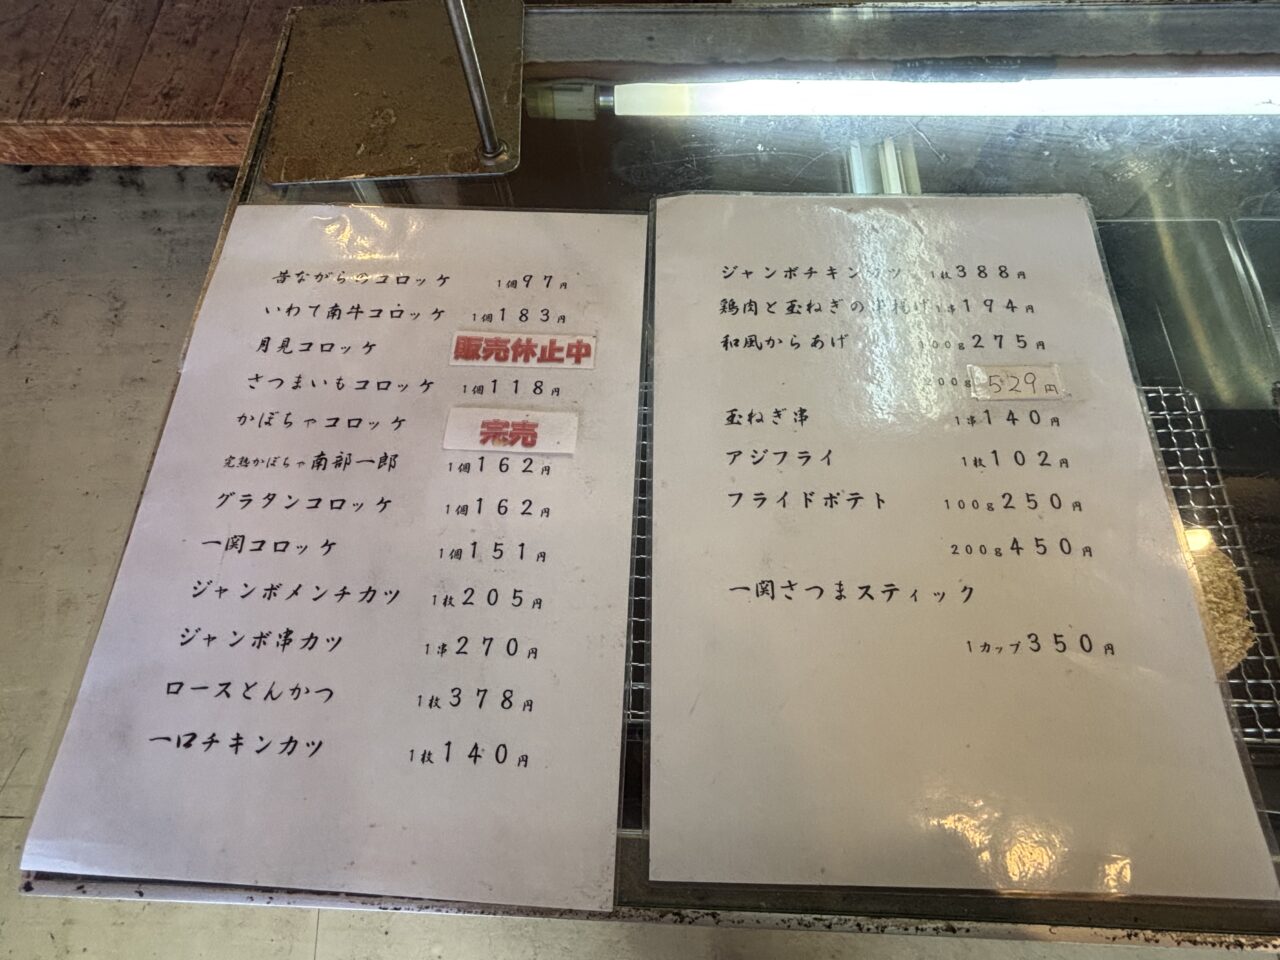 昔ながらのコロッケ 1個97円
いわて南牛コロッケ 1個183円
月見コロッケ 販売休止中
さつまいもコロッケ 1個118円
かぼちゃコロッケ 完売
完熟かぼちゃ南部一郎 1個162円
グラタンコロッケ 1個162円
一関コロッケ 1個151円
ジャンボメンチカツ 1枚205円
ジャンボ串カツ 1串270円
ロースとんかつ 1枚378円
一口チキンカツ 1枚140円
ジャンボチキンカツ 1枚388円
鶏肉と玉ねぎの串揚げ 1串194円
和風からあげ 100g275円
200g 529円
玉ねぎ串 1串140円
アジフライ 1枚102円
フライドポテト 100g250円
200g450円
一関さつまスティック
1カップ350円